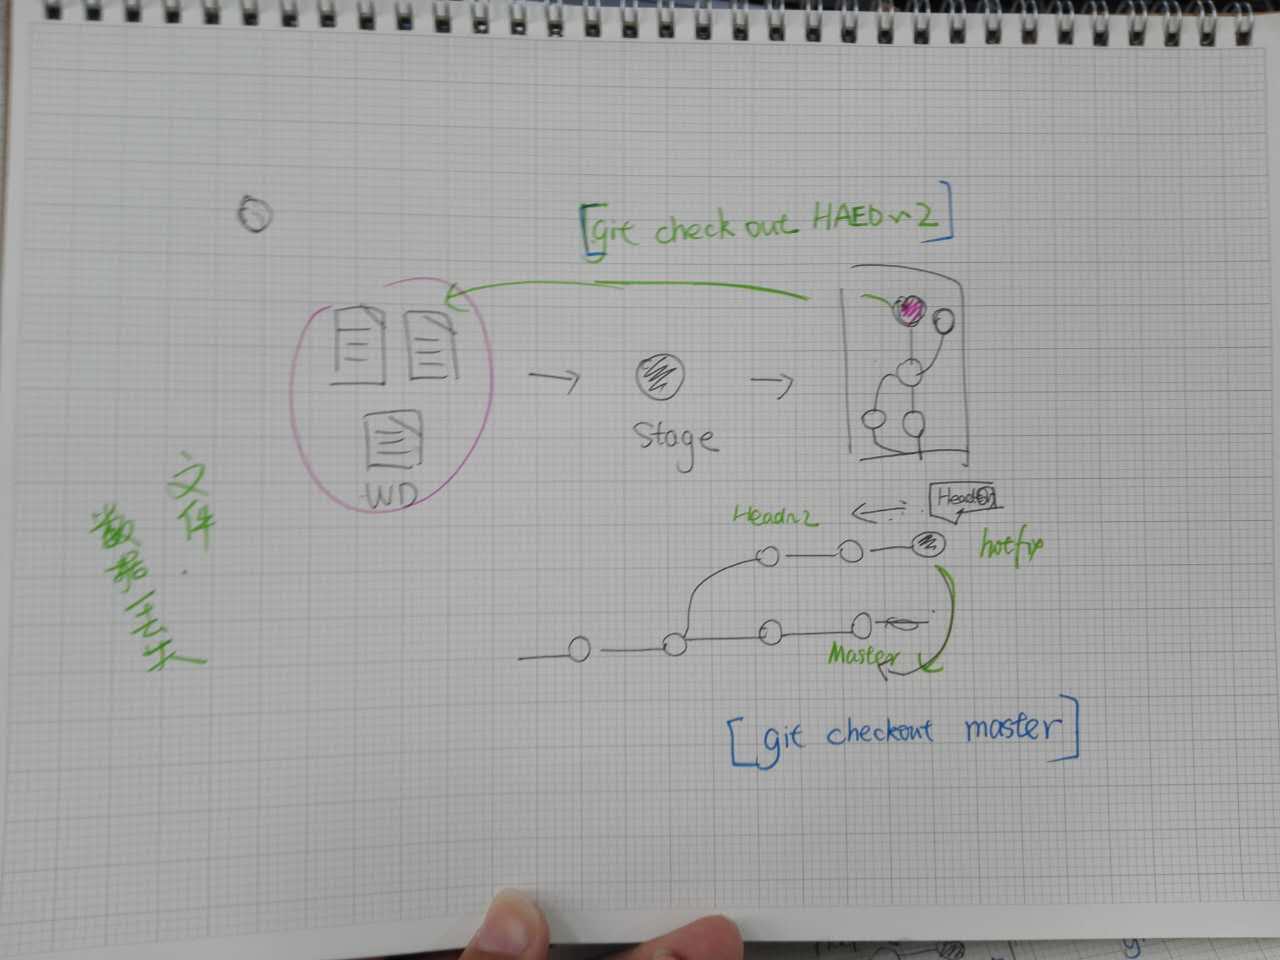 [git check out HAED~2]
Stage
WD
文件
数据
Head~2
Head
hotfix
Master
[git checkout master]